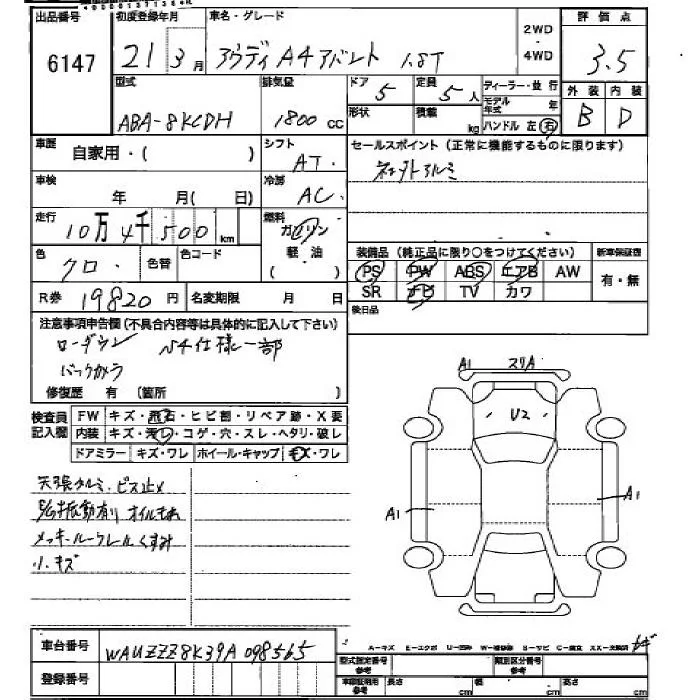 出品番号 初度登録年月 車名・グレード 2WD・4WD 評価点
6147 21年3月 アウディA4アバント 1.8T 3.5
型式 排気量 ドア 定員 ディーラー・並行 外装 内装
ABA-8KCDH 1800cc 5 5人 モデル年式 年 B D
形状 積載 kg ハンドル 左 右
車歴 シフト セールスポイント(正常に機能するものに限ります)
自家用・( ) AT 社外アルミ
車検 冷房
年 月( 日) AC
走行 燃料
10万4千500km ガソリン
軽油
( )
色 色替 色コード 装備品(純正品に限り○をつけてください) 新車保証書
クロ PS PW ABS エアB AW 有・無
R券 19820円 名変期限 月 日 SR ナビ TV カワ
後日品
注意事項申告欄(不具合内容等は具体的に記入して下さい)
ローダウン S4仕様一部
バックカメラ
修復歴 有(箇所 )
検査員記入欄 FW キズ・飛石・ヒビ割・リペア跡・X要
内装 キズ・汚レ・コゲ・穴・スレ・ヘタリ・破レ
ドアミラー キズ・ワレ ホイール・キャップ キズ・ワレ
A1 スリA
U2
A1
A1
天張タルミ・ビス止メ
振動有り オイルモレ
メッキ・ルーフレールくすみ
小キズ
車台番号 WAUZZZ8K39A098565
登録番号
A-キズ E-エクボ U-凹み W-補修跡 S-サビ C-腐食 XX-交換済
型式指定番号 参考 類別区分番号 参考
長さ cm 幅 cm 高さ cm